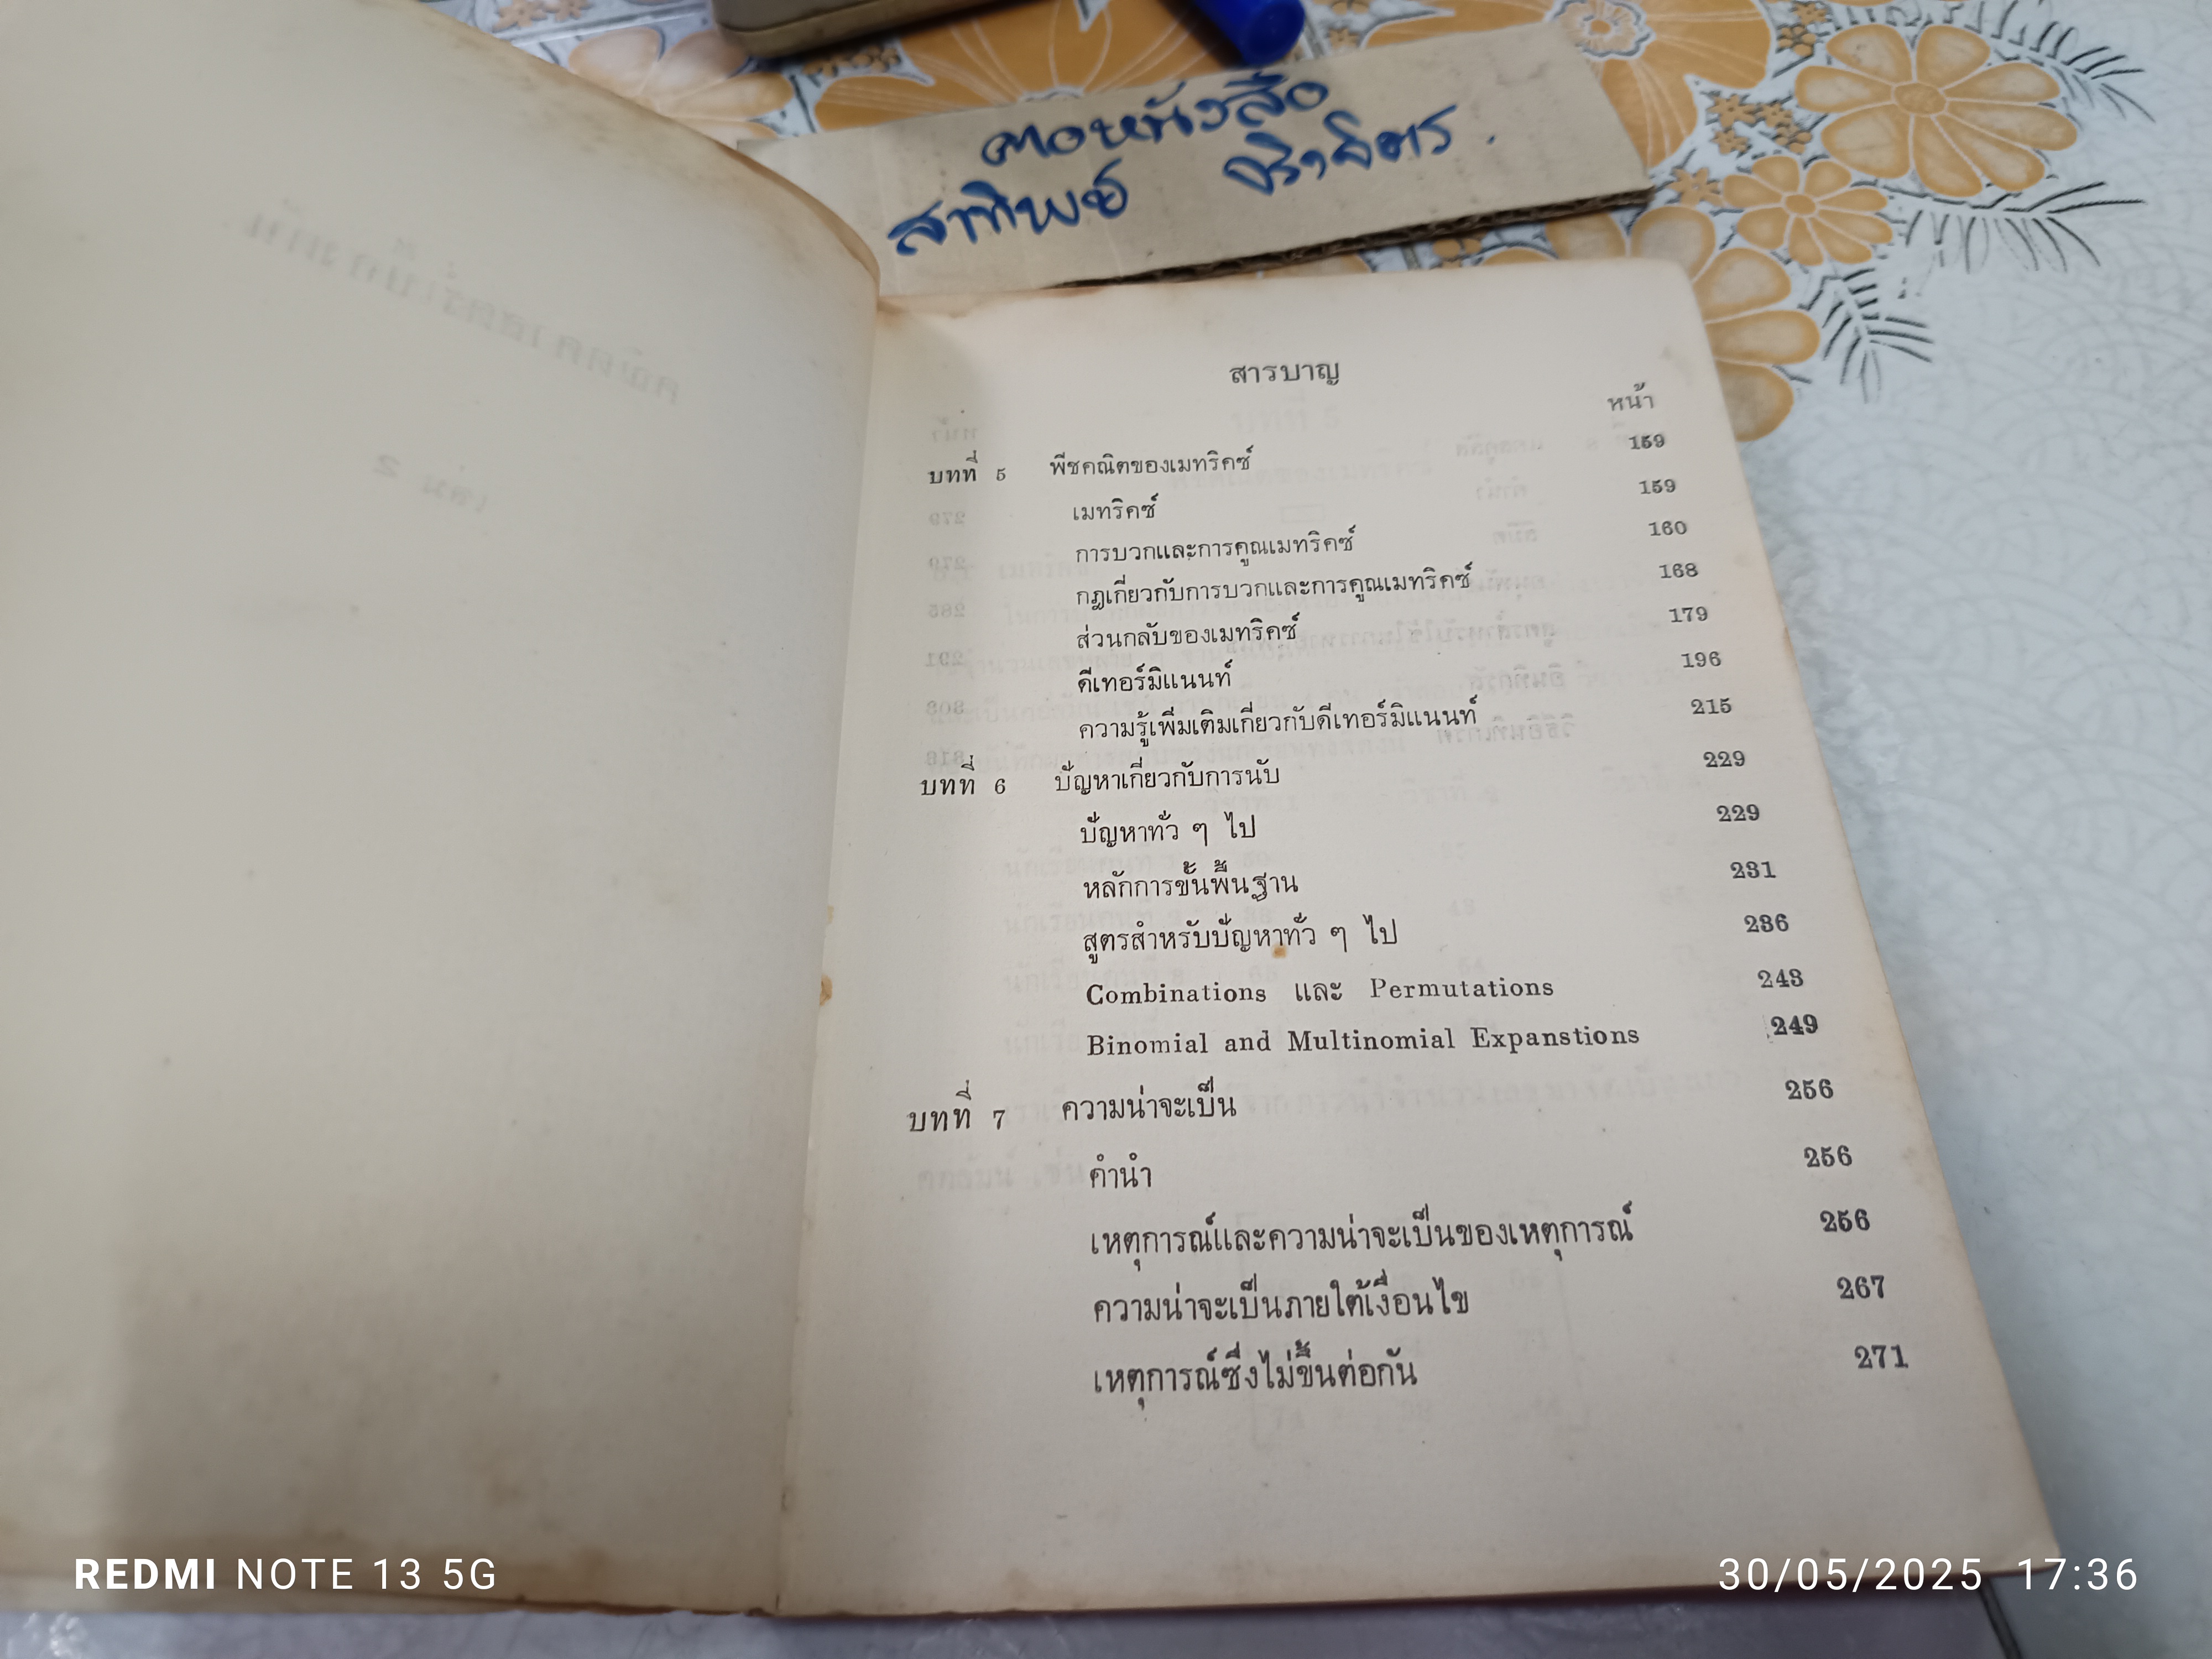 คอหนังสือ
สาทิพย์ จริงจิตร.
สารบาญ
หน้า
บทที่ 5 พีชคณิตของเมทริคซ์ 159
เมทริคซ์ 159
การบวกและการคูณเมทริคซ์ 160
กฎเกี่ยวกับการบวกและการคูณเมทริคซ์ 168
ส่วนกลับของเมทริคซ์ 179
ดีเทอร์มิแนนท์ 196
ความรู้เพิ่มเติมเกี่ยวกับดีเทอร์มิแนนท์ 215
บทที่ 6 ปัญหาเกี่ยวกับการนับ 229
ปัญหาทั่ว ๆ ไป 229
หลักการขั้นพื้นฐาน 231
สูตรสำหรับปัญหาทั่ว ๆ ไป 236
Combinations และ Permutations 243
Binomial and Multinomial Expanstions 249
บทที่ 7 ความน่าจะเป็น 256
คำนำ 256
เหตุการณ์และความน่าจะเป็นของเหตุการณ์ 256
ความน่าจะเป็นภายใต้เงื่อนไข 267
เหตุการณ์ซึ่งไม่ขึ้นต่อกัน 271
REDMI NOTE 13 5G
30/05/2025 17:36